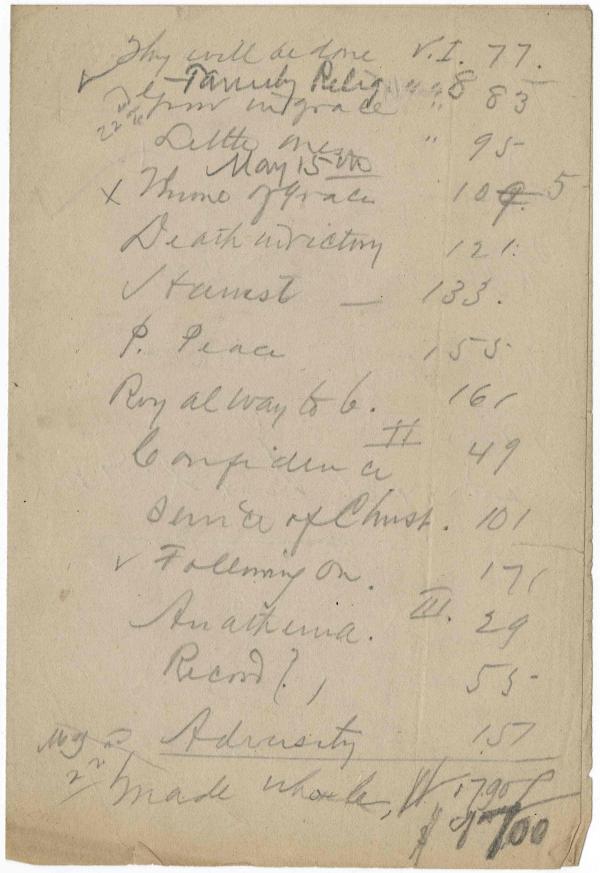 Thy will be done V. I. 77.
✓ Family Relig 8
Grow in grace " 85
22nd
Little ones " 95
May 15
x Throne of Grace 109 5
Death in victory 121.
✓ Harvest — 133.
P. Peace 155
Royal way to C. 161
Confidence II 49
Service of Christ. 101
✓ Following on. 171
Anathema. III. 29
Record?, 55
Adversity 157
22
Made whole,